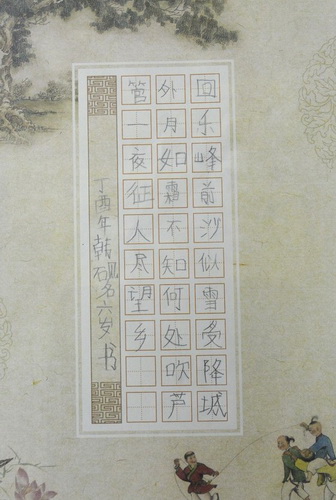 回乐峰前沙似雪受降城
外月如霜不知何处吹芦
管一夜征人尽望乡
丁酉年韩砚六岁书